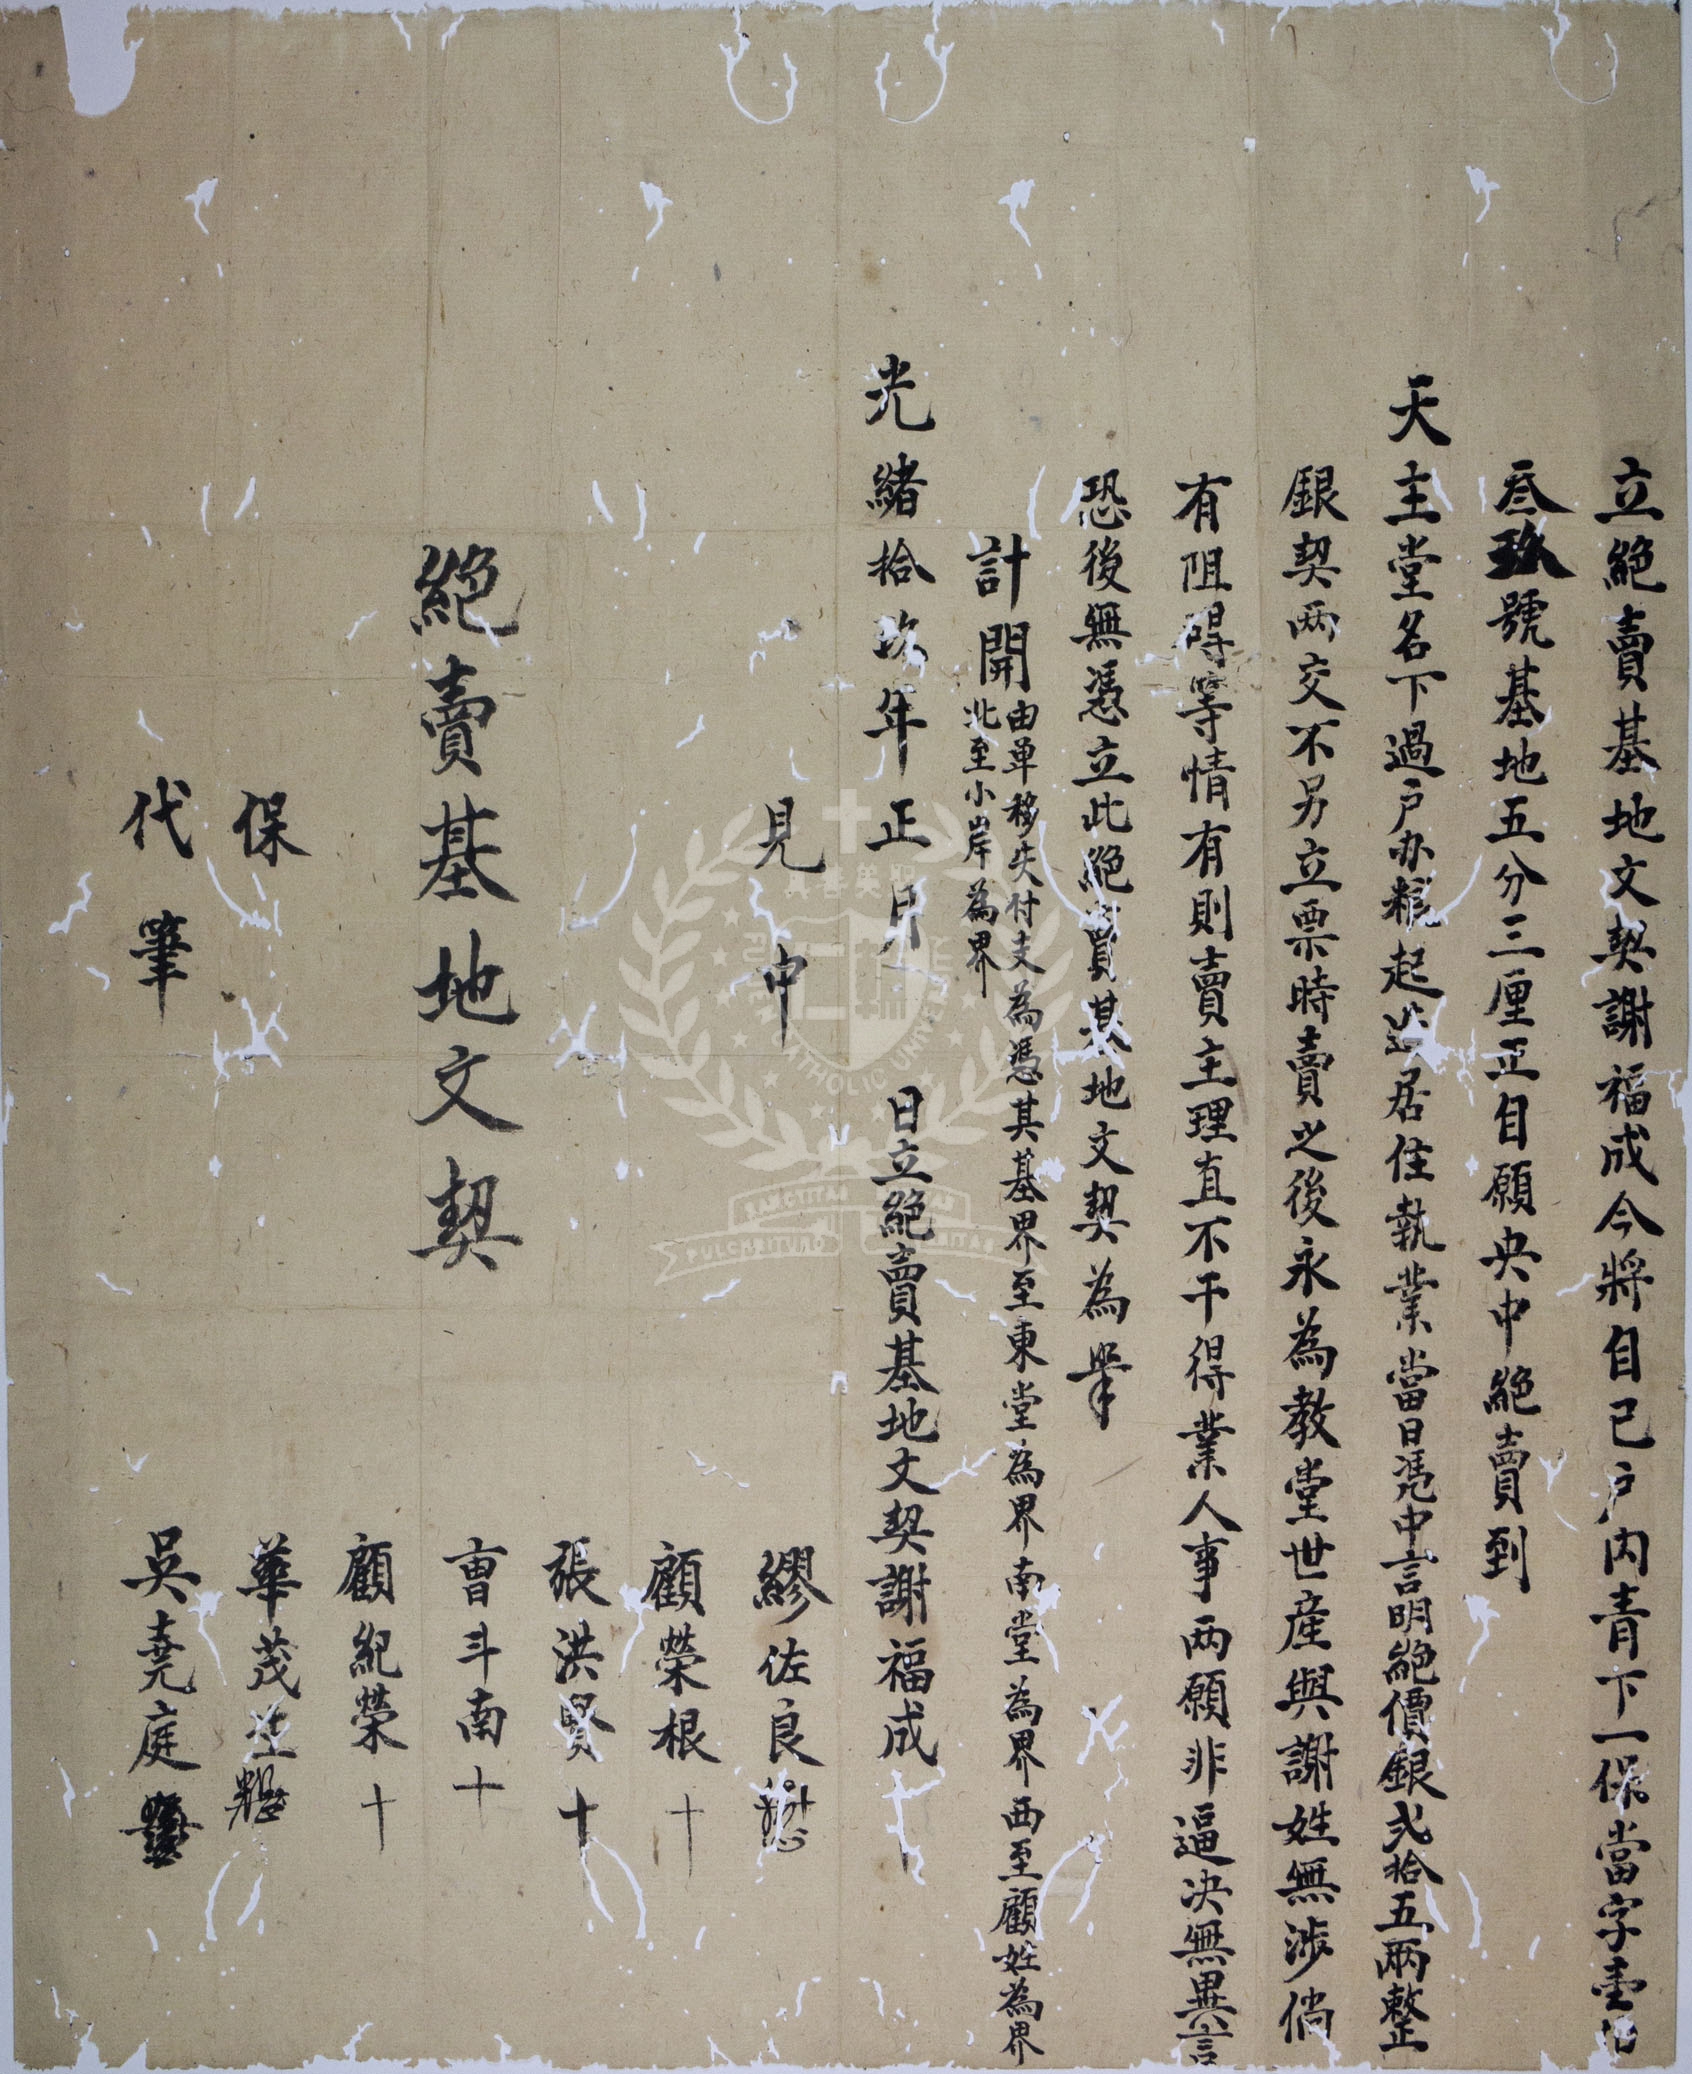 立絕賣基地文契謝福成今將自己戶內青下一保當字壹佰
叁玖號基地五分三厘正自願央中絕賣到
天主堂名下過戶办粮起造居住執業當日憑中言明絕價銀弍拾五兩整
銀契两交不另立票時賣之後永為教堂世産與謝姓無涉倘
有阻碍等情有則賣主理直不干得業人事两願非逼决無異言
恐後無憑立此絕賣基地文契為㨿
計開
由单移失付支為憑其基界至東堂為界南堂為界西至顧姓為界
北至小岸為界
光緒拾玖年正月 日立絕賣基地文契謝福成十
見中 繆佐良
顧榮根十
張洪賢十
曹斗南十
絕賣基地文契
顧紀榮十
保 華茂生
代筆 吳堯庭